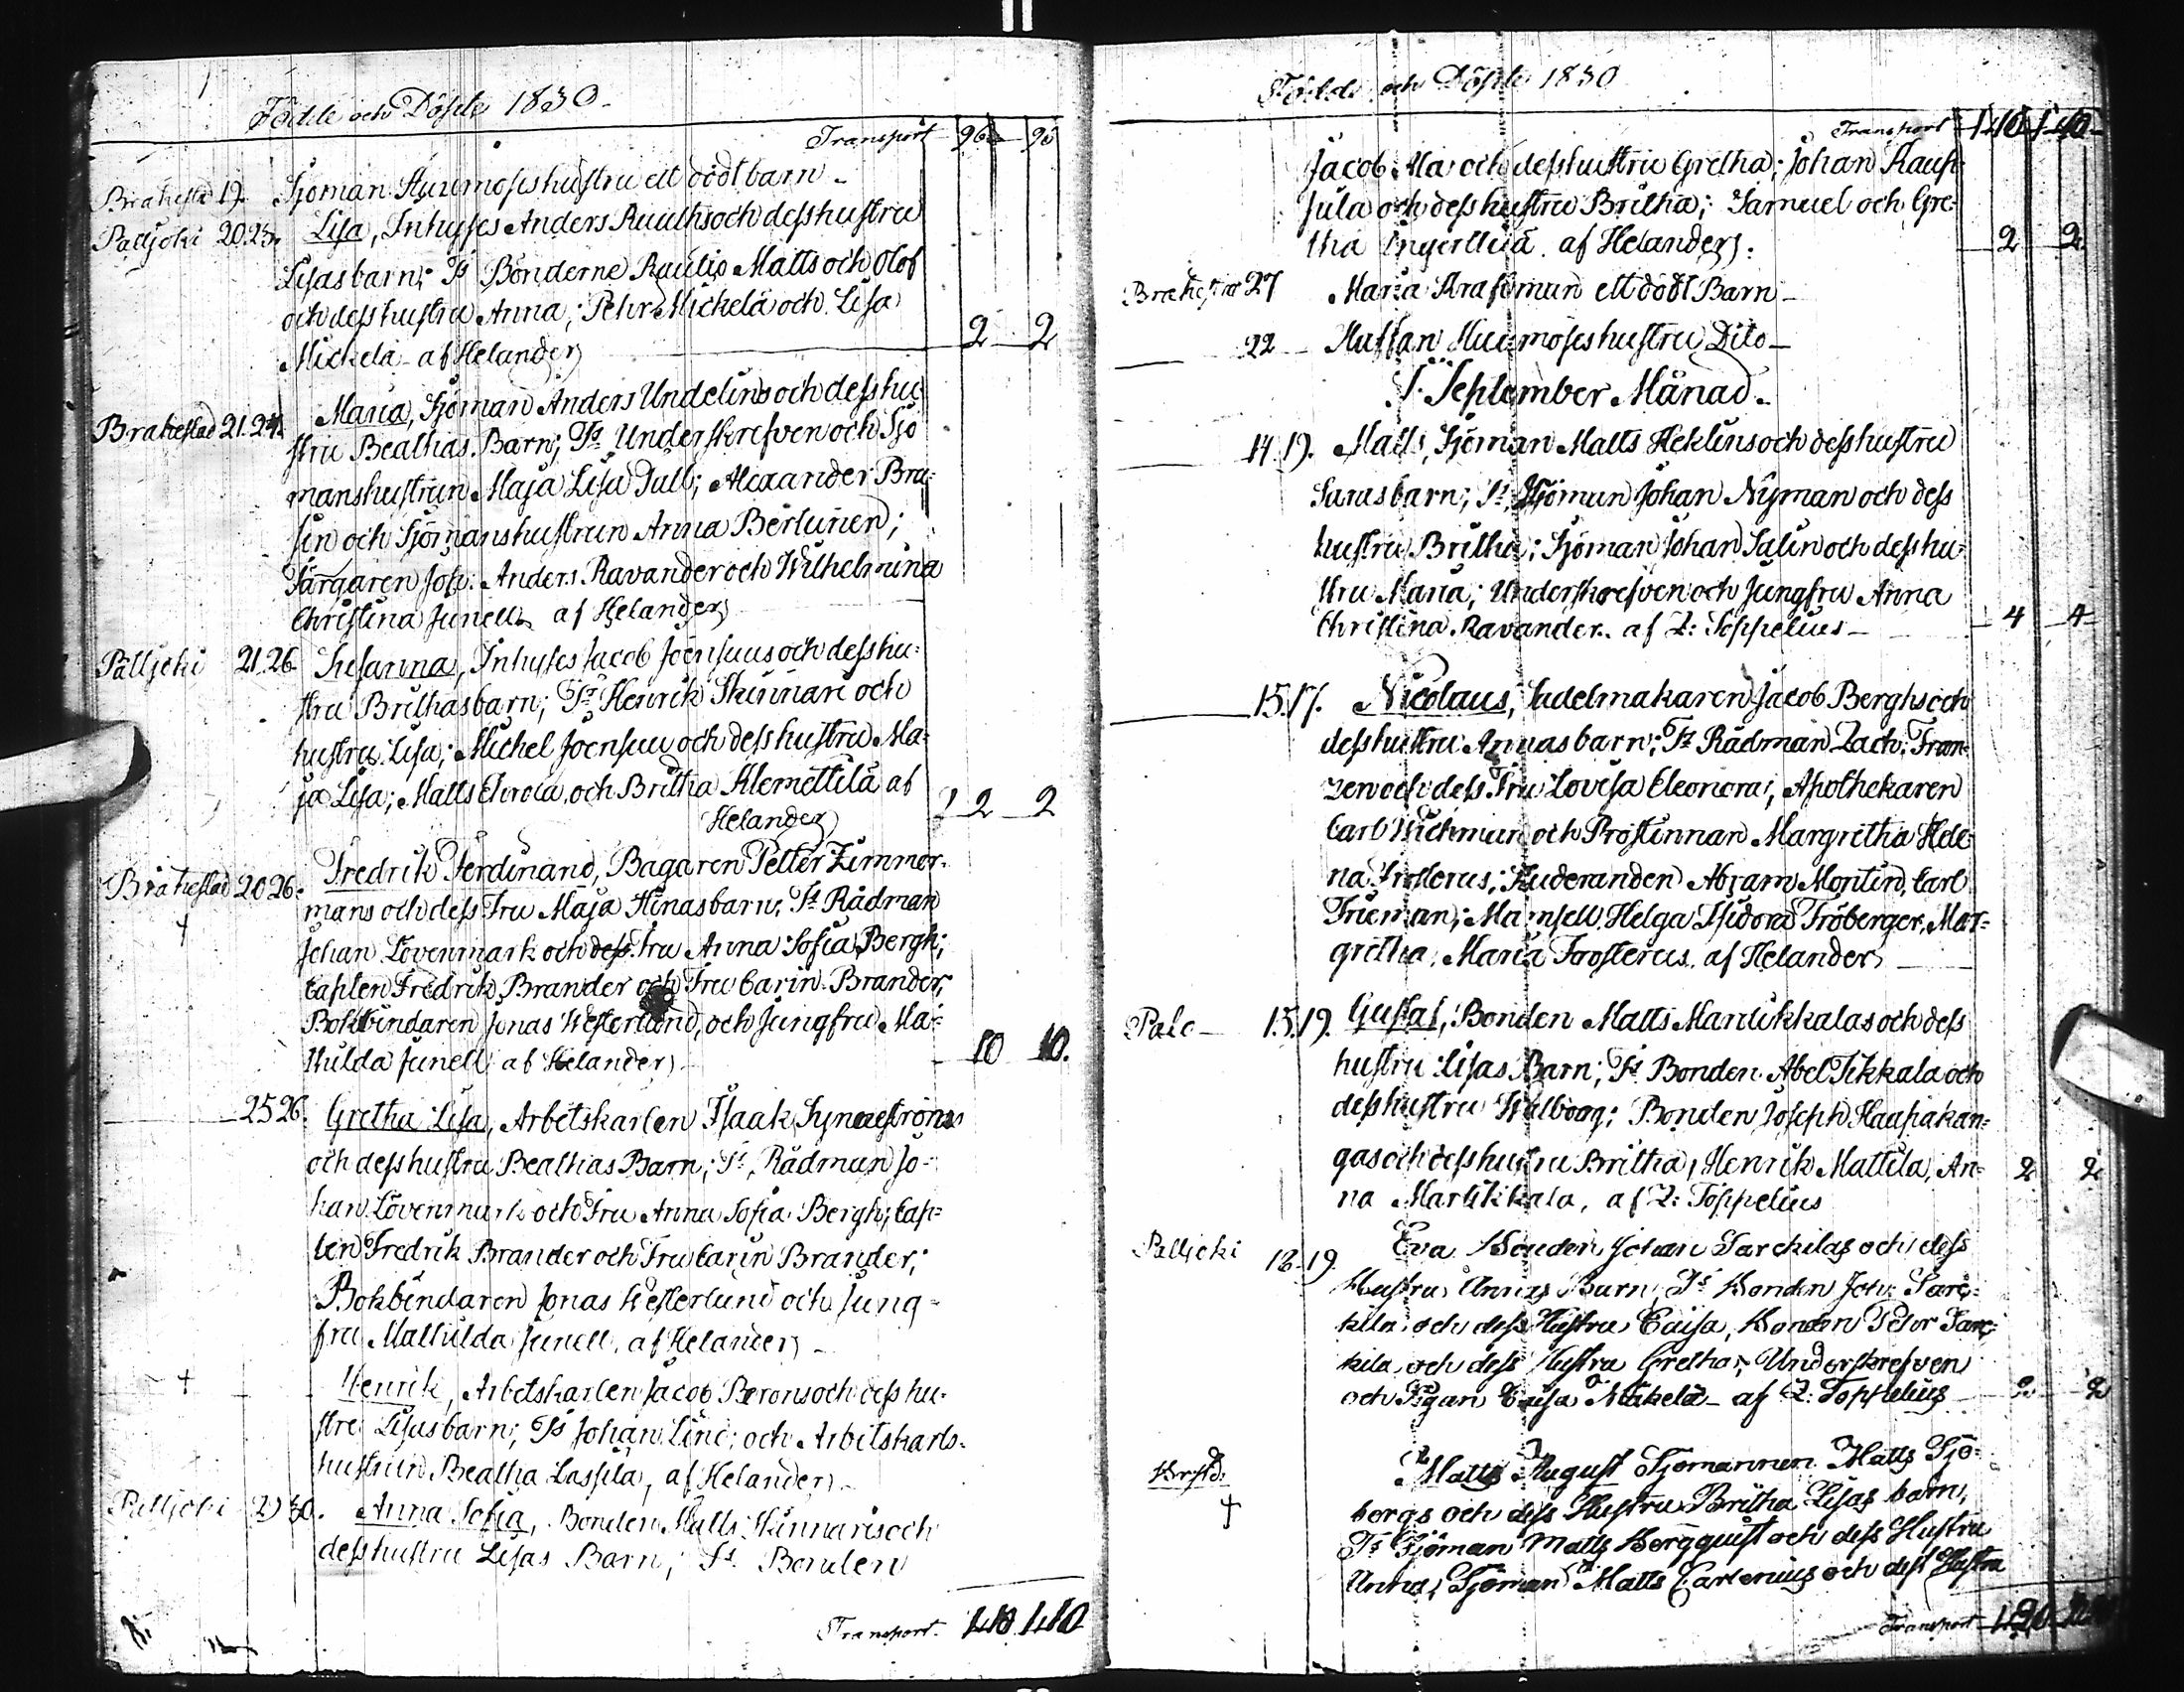 Födde och Döpte 1830.
Transport 96 96
Brahestad 19. Sjöman Huumoses hustru ett dödt barn
Pattjoki 20.23. Lisa, Inhyses Anders Ruuths och dess hustru
Lisas barn; Ts Bönderne Rautio Matts och Olof
och dess hustru Anna; Pehr Mickelä och Lisa
Mickelä af Helander 2 2
Brahestad 21.24. Maria, Sjöman Anders Undelins och dess hu
stru Beathas Barn; Ts Underskrefven och Sjö
manshustrun Maja Lisa Tull; Alexander Bra-
sin och Sjömanshustrun Anna Berlunen;
Färgaren Joh. Anders Ravander och Wilhelmina
Christina Junell af Helander
Pattjoki 21.26. Susanna, Inhyses Jacob Joensuus och dess hu-
stru Brithas barn; Ts Henrik Skinnari och
hustru Lisa; Michel Joensuu och dess hustru Ma-
ja Lisa; Matts och Britha Klemettilä af
Helander 2 2
Brahestad 20.26. Fredrik Ferdinand, Bagaren Petter Zimmer-
mans och dess Fru Maja Stinas barn; Ts Rådman
Johan Lövenmark och dess Fru Anna Sofia Bergh;
Capten Fredrik Brander och Fru Carin Brander;
Bokbindaren Jonas Westerlund, och Jungfru Ma-
thilda Junell af Helander 10 10.
25 26. Gretha Lisa, Arbetskarlen Isaak
och dess hustru Beathas Barn; Ts, Rådman Jo-
han Lövenmark och Fru Anna Sofia Bergh; Cap-
ten Fredrik Brander och Fru Carin Brander;
Bokbindaren Jonas Westerlund och Jung-
fru Mathilda Junell, af Helander
Henrik, Arbetskarlen Jacob Berons och dess hu-
stru Lisas barn; Ts Johan Lind; och Arbetskarls-
hustrun Beatha Lassila, af Helander
Pattjoki 29 30. Anna Sofia, Bonden Matts Kinnaris och
dess hustru Lisas Barn; Ts. Bonden
Transport 140 140
Födde och Döpte 1830
Transport 140 140
Jacob Ala och dess hustru Gretha; Johan Kaup-
pila och dess hustru Britha; Samuel och Gre-
tha af Helander. 2 2
Brahestad 27 Maria ett dödt Barn
22 Huumoses hustru Dito
I September Månad.
14.19. Matts, Sjöman Matts Heklins och dess hustru
Saras barn; Ts, Sjöman Johan Nyman och dess
hustru Britha; Sjöman Johan Salin och dess hu-
stru Maria; Underskrefven och Jungfru Anna
Christina Ravander. af Z: Toppelius 4 4
15.17. Nicolaus, Sadelmakaren Jacob Berghs och
dess hustru Annas barn; Ts Rådman Zach: Fran-
zen och dess Fru Lovisa Eleonora; Apothekaren
Carl Wichman och Prostinnan Margretha Hele-
na Frosterus; Studeranden Abram Montin, Carl
Frieman; Mamsell Helga Isidora Fröberger, Mar-
gretha, Maria Frosterus. af Helander
Palo 15.19. Gustaf, Bonden Matts Martikkalas och dess
hustru Lisas Barn; Ts Bonden Abel Tikkala och
dess hustru Walborg; Bonden Joseph Haapakan-
gas och dess hustru Britha; Henrik Mattila, An-
na Martikkala, af Z: Toppelius 2 2
Pattjoki 18.19. Eva Bonden Johan Sarckilas och dess
Hustru Annas Barn; Ts Bonden Joh: Sarc-
kila och dess Hustru Caisa, Bonden Pehr Sarc-
kila och dess Hustru Gretha; Underskrefven
och Pigan Caisa Mäkelä af Z. Toppelius 2 2
Brstd. Matts August Sjömannen Matts Sjö-
bergs och dess Hustru Britha Lisas barn;
Ts Sjöman Matts Bergquist och dess Hustru
Anna; Sjöman Matts Carlenius och dess Hustru
Transport